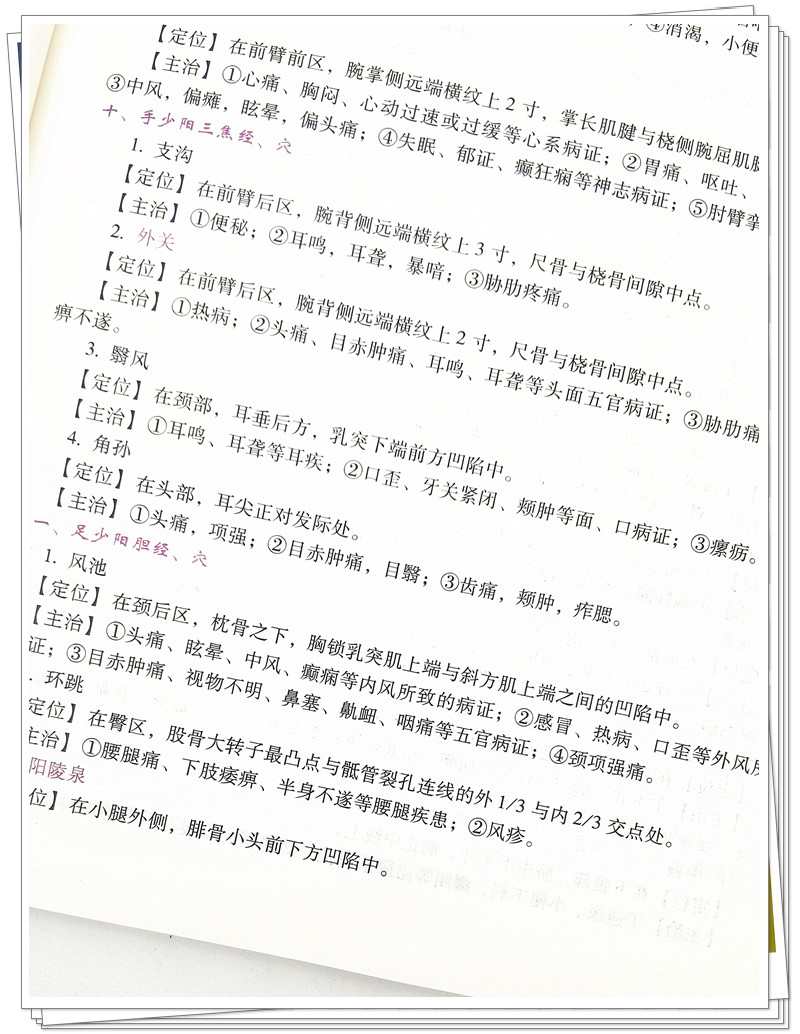 ④消渴，小便
【定位】在前臂前区，腕掌侧远端横纹上2寸，掌长肌腱与桡侧腕屈肌腱
【主治】①心痛、胸闷、心动过速或过缓等心系病证；②胃痛、呕吐、
③中风，偏瘫，眩晕，偏头痛；④失眠、郁证、癫狂痫等神志病证；⑤肘臂挛
十、手少阳三焦经、穴
1. 支沟
【定位】在前臂后区，腕背侧远端横纹上3寸，尺骨与桡骨间隙中点。
【主治】①便秘；②耳鸣，耳聋，暴喑；③胁肋疼痛。
2. 外关
【定位】在前臂后区，腕背侧远端横纹上2寸，尺骨与桡骨间隙中点。
【主治】①热病；②头痛、目赤肿痛、耳鸣、耳聋等头面五官病证；③胁肋痛
痹不遂。
3. 翳风
【定位】在颈部，耳垂后方，乳突下端前方凹陷中。
【主治】①耳鸣、耳聋等耳疾；②口歪、牙关紧闭、颊肿等面、口病证；③瘰疬。
4. 角孙
【定位】在头部，耳尖正对发际处。
【主治】①头痛，项强；②目赤肿痛，目翳；③齿痛，颊肿，痄腮。
一、足少阳胆经、穴
1. 风池
【定位】在颈后区，枕骨之下，胸锁乳突肌上端与斜方肌上端之间的凹陷中。
【主治】①头痛、眩晕、中风、癫痫等内风所致的病证；②感冒、热病、口歪等外风所
证；③目赤肿痛、视物不明、鼻塞、鼽衄、咽痛等五官病证；④颈项强痛。
. 环跳
定位】在臀区，股骨大转子最凸点与骶管裂孔连线的外1/3与内2/3交点处。
主治】①腰腿痛、下肢痿痹、半身不遂等腰腿疾患；②风疹。
阳陵泉
位】在小腿外侧，腓骨小头前下方凹陷中。